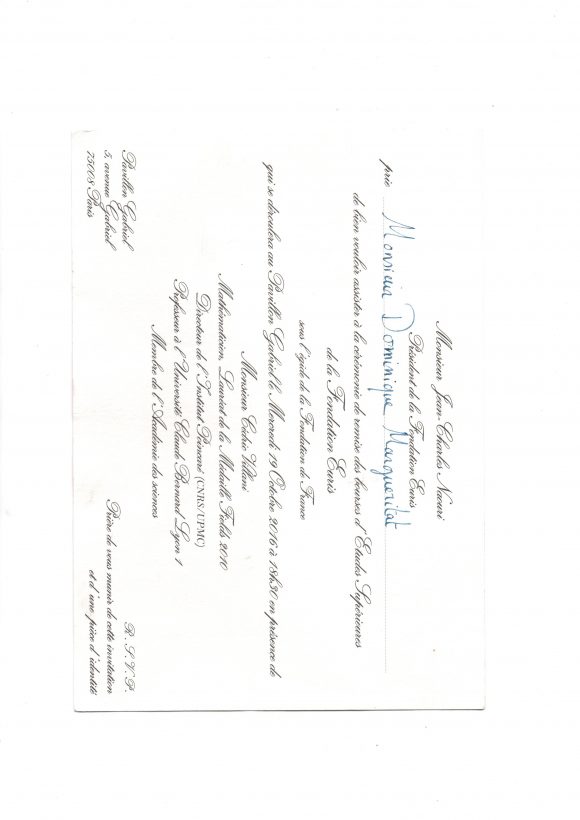 Monsieur Jean-Charles Naouri
Président de la Fondation Euris
prie Monsieur Dominique Margueritat
de bien vouloir assister à la cérémonie de remise des bourses d'Etudes Supérieures
de la Fondation Euris
sous l'égide de la Fondation de France
qui se déroulera au Pavillon Gabriel le Mercredi 19 Octobre 2016 à 18h30 en présence de
Monsieur Cédric Villani
Mathématicien, Lauréat de la Médaille Fields 2010
Directeur de l'Institut Poincaré (CNRS/UPMC)
Professeur à l'Université Claude Bernard Lyon 1
Membre de l'Académie des sciences
Pavillon Gabriel
5, avenue Gabriel
75008 Paris
R.S.V.P.
Prière de vous munir de cette invitation
et d'une pièce d'identité